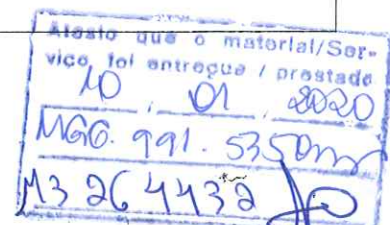 Atesto que o material/Ser-
viço foi entregue / prestado
10 / 01 / 2020
MG6. 991. 535
M3 264432